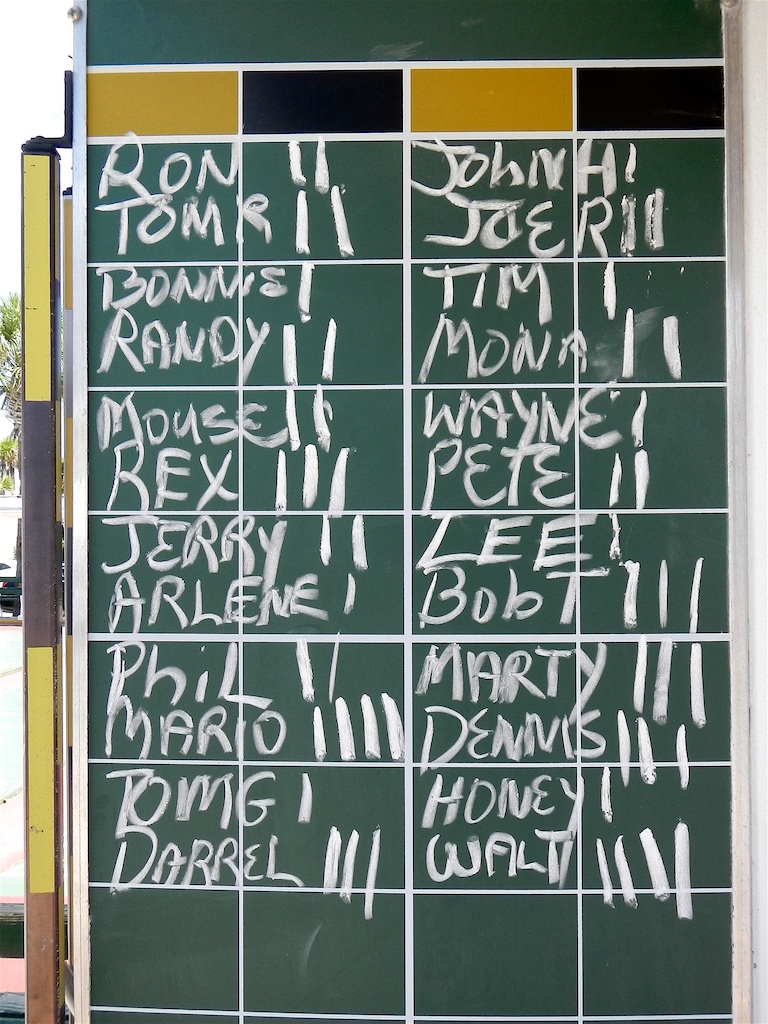 RON II
TOM R II
BONNIE I
RANDY II
MOUSE II
REX III
JERRY II
ARLENE I
PHIL II
MARIO IIII
TOM G I
DARREL III
JOHN H I
JOE R II
TIM I
MONA II
WAYNE I
PETE II
LEE I
BOB T III
MARTY III
DENNIS III
HONEY I
WALT IIII